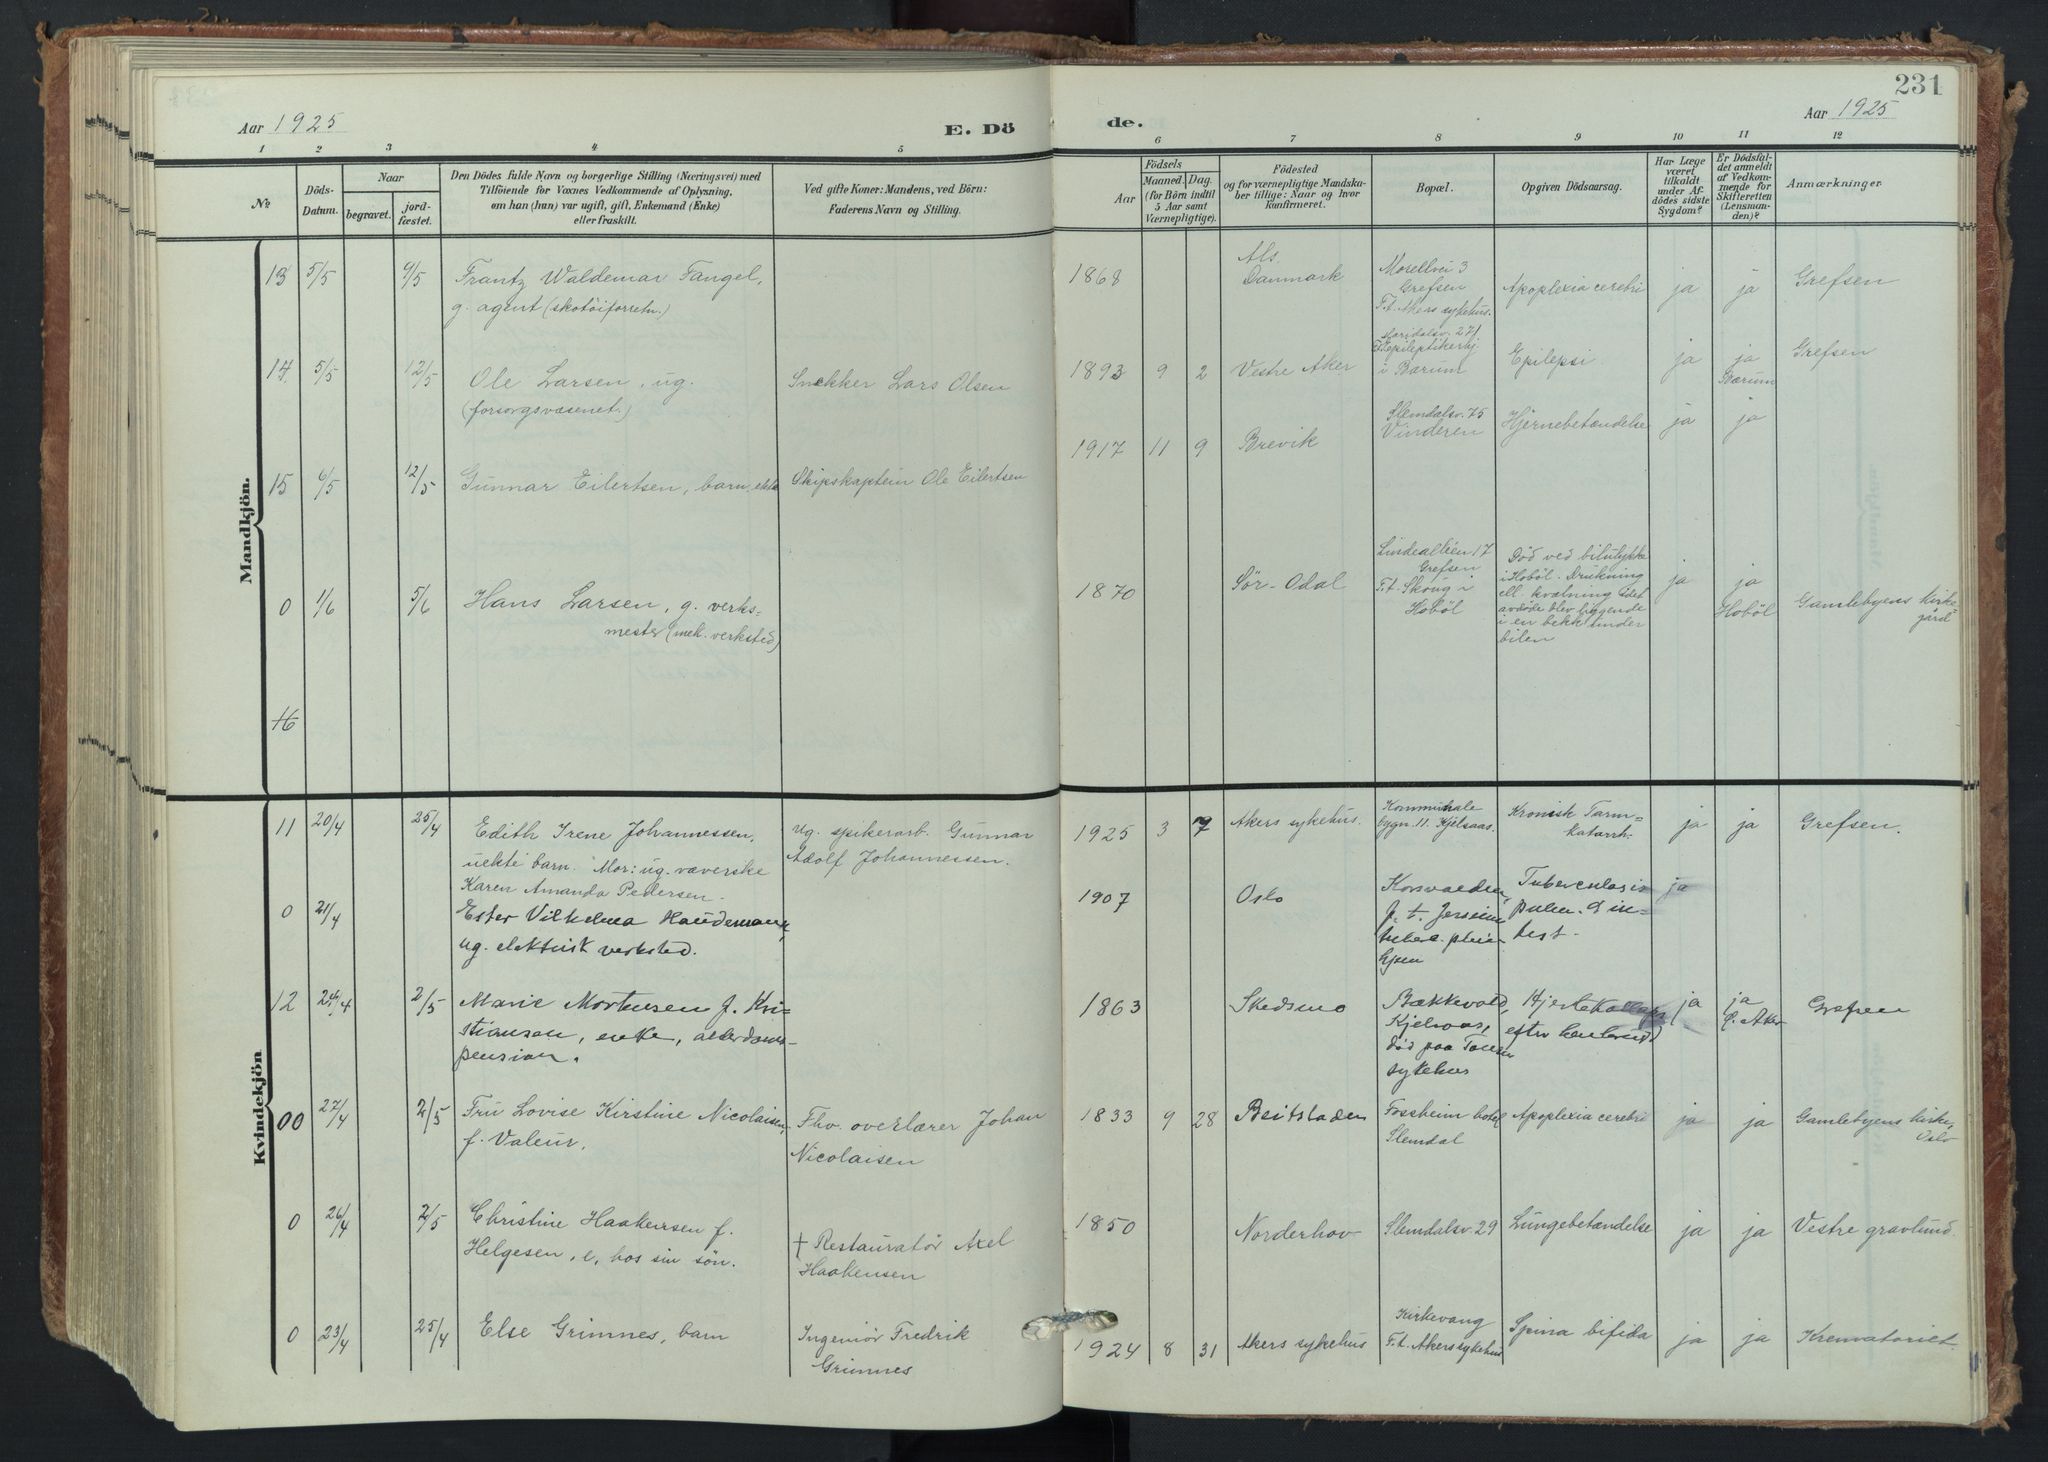 Aar 1925
E. Dö
de.
Aar 1925
231
1 2 3 4 5 6 7 8 9 10 11 12
No.
Döds-
Datum.
Naar
begravet.
jord-
fæstet.
Den Dödes fulde Navn og borgerlige Stilling (Næringsvei) med
Tilföiende for Voxnes Vedkommende af Oplysning,
om han (hun) var ugift, gift, Enkemand (Enke)
eller fraskilt.
Ved gifte Koner: Mandens, ved Börn:
Faderens Navn og Stilling.
Födsels
Aar
Maaned. Dag.
(for Börn indtil
5 Aar samt
Værnepligtige).
Födested
og for værnepligtige Mandska-
ber tillige: Naar og hvor
konfirmeret.
Bopæl.
Opgiven Dödsaarsag.
Har Læge
været
tilkaldt
under Af-
dödes sidste
Sygdom?
Er Dödsfal-
det anmeldt
af Vedkom-
mende for
Skifteretten
(Lensman-
den)?
Anmærkninger
Mandkjön.
13 5/5 9/5 Frantz Waldemar Fangel,
g. agent (skotöiforretn.)
1868
Als.
Danmark
Morellvei 3
Grefsen
F.t. Akers sykehus.
Apoplexia cerebri
ja ja Grefsen
14 5/5 12/5 Ole Larsen, ug.
(forsorgsvæsenet.)
Snekker Lars Olsen
1893 9 2 Vestre Aker
Maridalsv. 271
F.t. Epileptikerhj.
i Bærum
Epilepsi
ja ja
Bærum
Grefsen
15 6/5 12/5 Gunnar Eilertsen, barn, ekte
Skipskaptein Ole Eilertsen
1917 11 9 Brevik
Slemdalsv. 75
Vinderen
Hjernebetændelse
ja ja
0 1/6 5/6 Hans Larsen, g. verks-
mester (mek. verksted)
1870 Sör-Odal
Lindealléen 17
Grefsen
F.t. Skoug i
Hoböl
Död ved bilulykke
i Hoböl. Drukning
ell. kvælning idet
avdöde blev liggende
i en bekk under
bilen
ja ja
Hoböl
Gamlebyens kirke=
gård
16
Kvindekjön
11 20/4 25/4 Edith Irene Johannessen,
uekte barn. Mor: ug. væverske
Karen Amanda Pedersen.
ug. spikerarb. Gunnar
Adolf Johannessen.
1925 3 7 Akers sykehus.
Kommunale
bygn. 11. Kjelsaas.
Kronisk Tarm-
katarrh.
ja ja Grefsen.
0 21/4 Ester Vilhelma
ug. elektrisk verksted.
1907 Oslo
Tuberculosis
pulm. & in-
test.
ja
12 24/4 2/5 Marie Mortensen f. Kri-
stiansen, enke, alderdoms-
pension.
1863 Skedsmo
Bækkevold,
Kjelsaas,
död paa Tonsen
sykehus
efter
ja ja
Aker
Grefsen
00 27/4 2/5 Fru Lovise Kirstine Nicolaisen,
f. Valeur.
Fhv. overlærer Johan
Nicolaisen
1833 9 28 Beitstaden
Fossheim hotel
Slemdal
Apoplexia cerebri
ja ja Gamlebyens kirke,
Oslo
0 26/4 2/5 Christine Haakensen f.
Helgesen, e. hos sin sön.
† Restauratør Axel
Haakensen
1850 Norderhov
Slemdalsv. 29 Lungebetændelse ja ja Vestre gravlund.
0 23/4 25/4 Else Grimnes, barn
Ingeniör Fredrik
Grimnes
1924 8 31 Akers sykehus
Kirkevang
F.t. Akers sykehus
Spina bifida
ja ja Krematoriet.